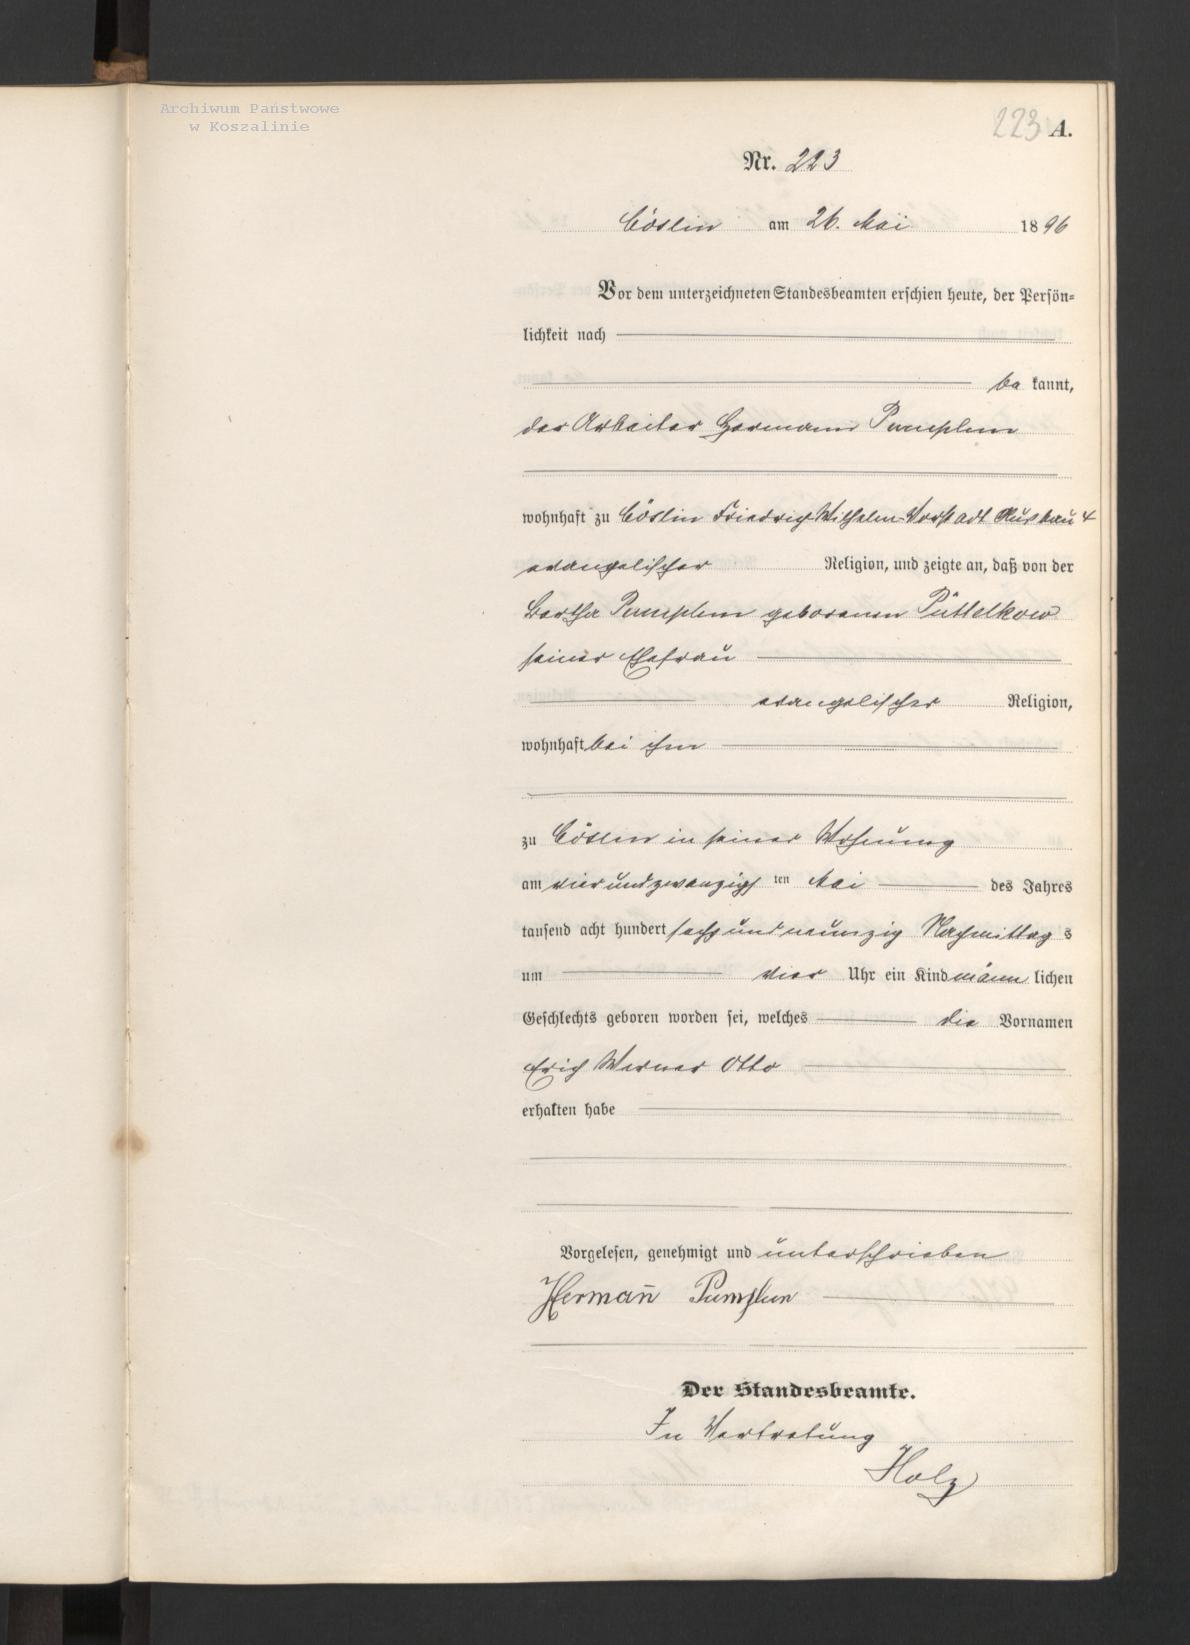 Archiwum Państwowe
w Koszalinie
223 A.
Nr. 223
Cöslin am 26. Mai 1896
Vor dem unterzeichneten Standesbeamten erschien heute, der Persön-
lichkeit nach
be kannt,
der Arbeiter Hermann Pumplun
wohnhaft zu Cöslin Friedrich Wilhelm-Vorstadt Ausbau 4
evangelischer Religion, und zeigte an, daß von der
Bertha Pumplun geborenen Püttelkow
seiner Ehefrau
evangelischer Religion,
wohnhaft bei ihm
zu Cöslin in seiner Wohnung
am vierundzwanzigs ten Mai des Jahres
tausend acht hundert sechs und neunzig Nachmittag s
um vier Uhr ein Kind männ lichen
Geschlechts geboren worden sei, welches die Vornamen
Erich Werner Otto
erhalten habe
Vorgelesen, genehmigt und unterschrieben
Hermañ Pumplun
Der Standesbeamte.
In Vertretung
Holz